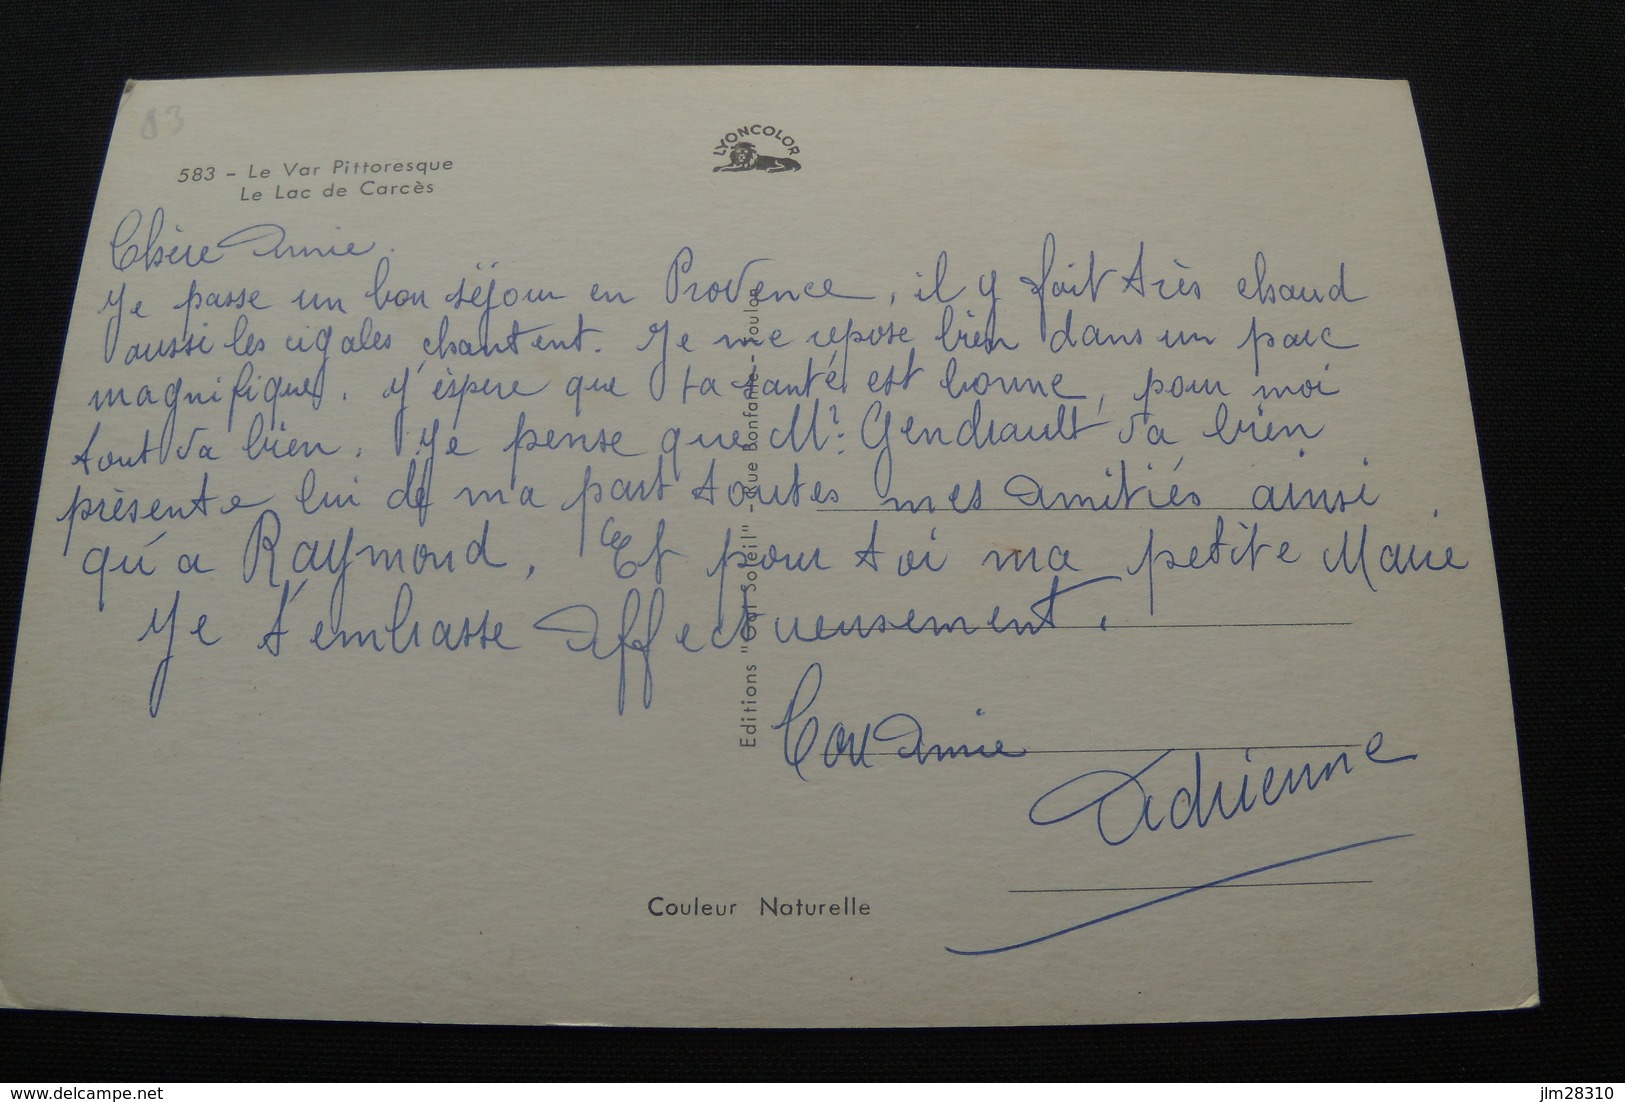 83
LYONCOLOR
583 - Le Var Pittoresque
Le Lac de Carcès
Chère Amie.
Je passe un bon séjour en Provence, il y fait très chaud
aussi les cigales chantent. Je me repose bien dans un parc
magnifique. J'éspère que ta santé est bonne, pour moi
tout va bien. Je pense que Mr. Gendrault va bien
présente lui de ma part toutes mes amitiés ainsi
qu'a Raymond. Et pour toi ma petite Marie
Je t'embrasse affectueusement.
Ton Amie
Adrienne
Editions "Gai Soleil" - Rue Bonfante - Toulon
Couleur Naturelle
delcampe.net
jlm28310